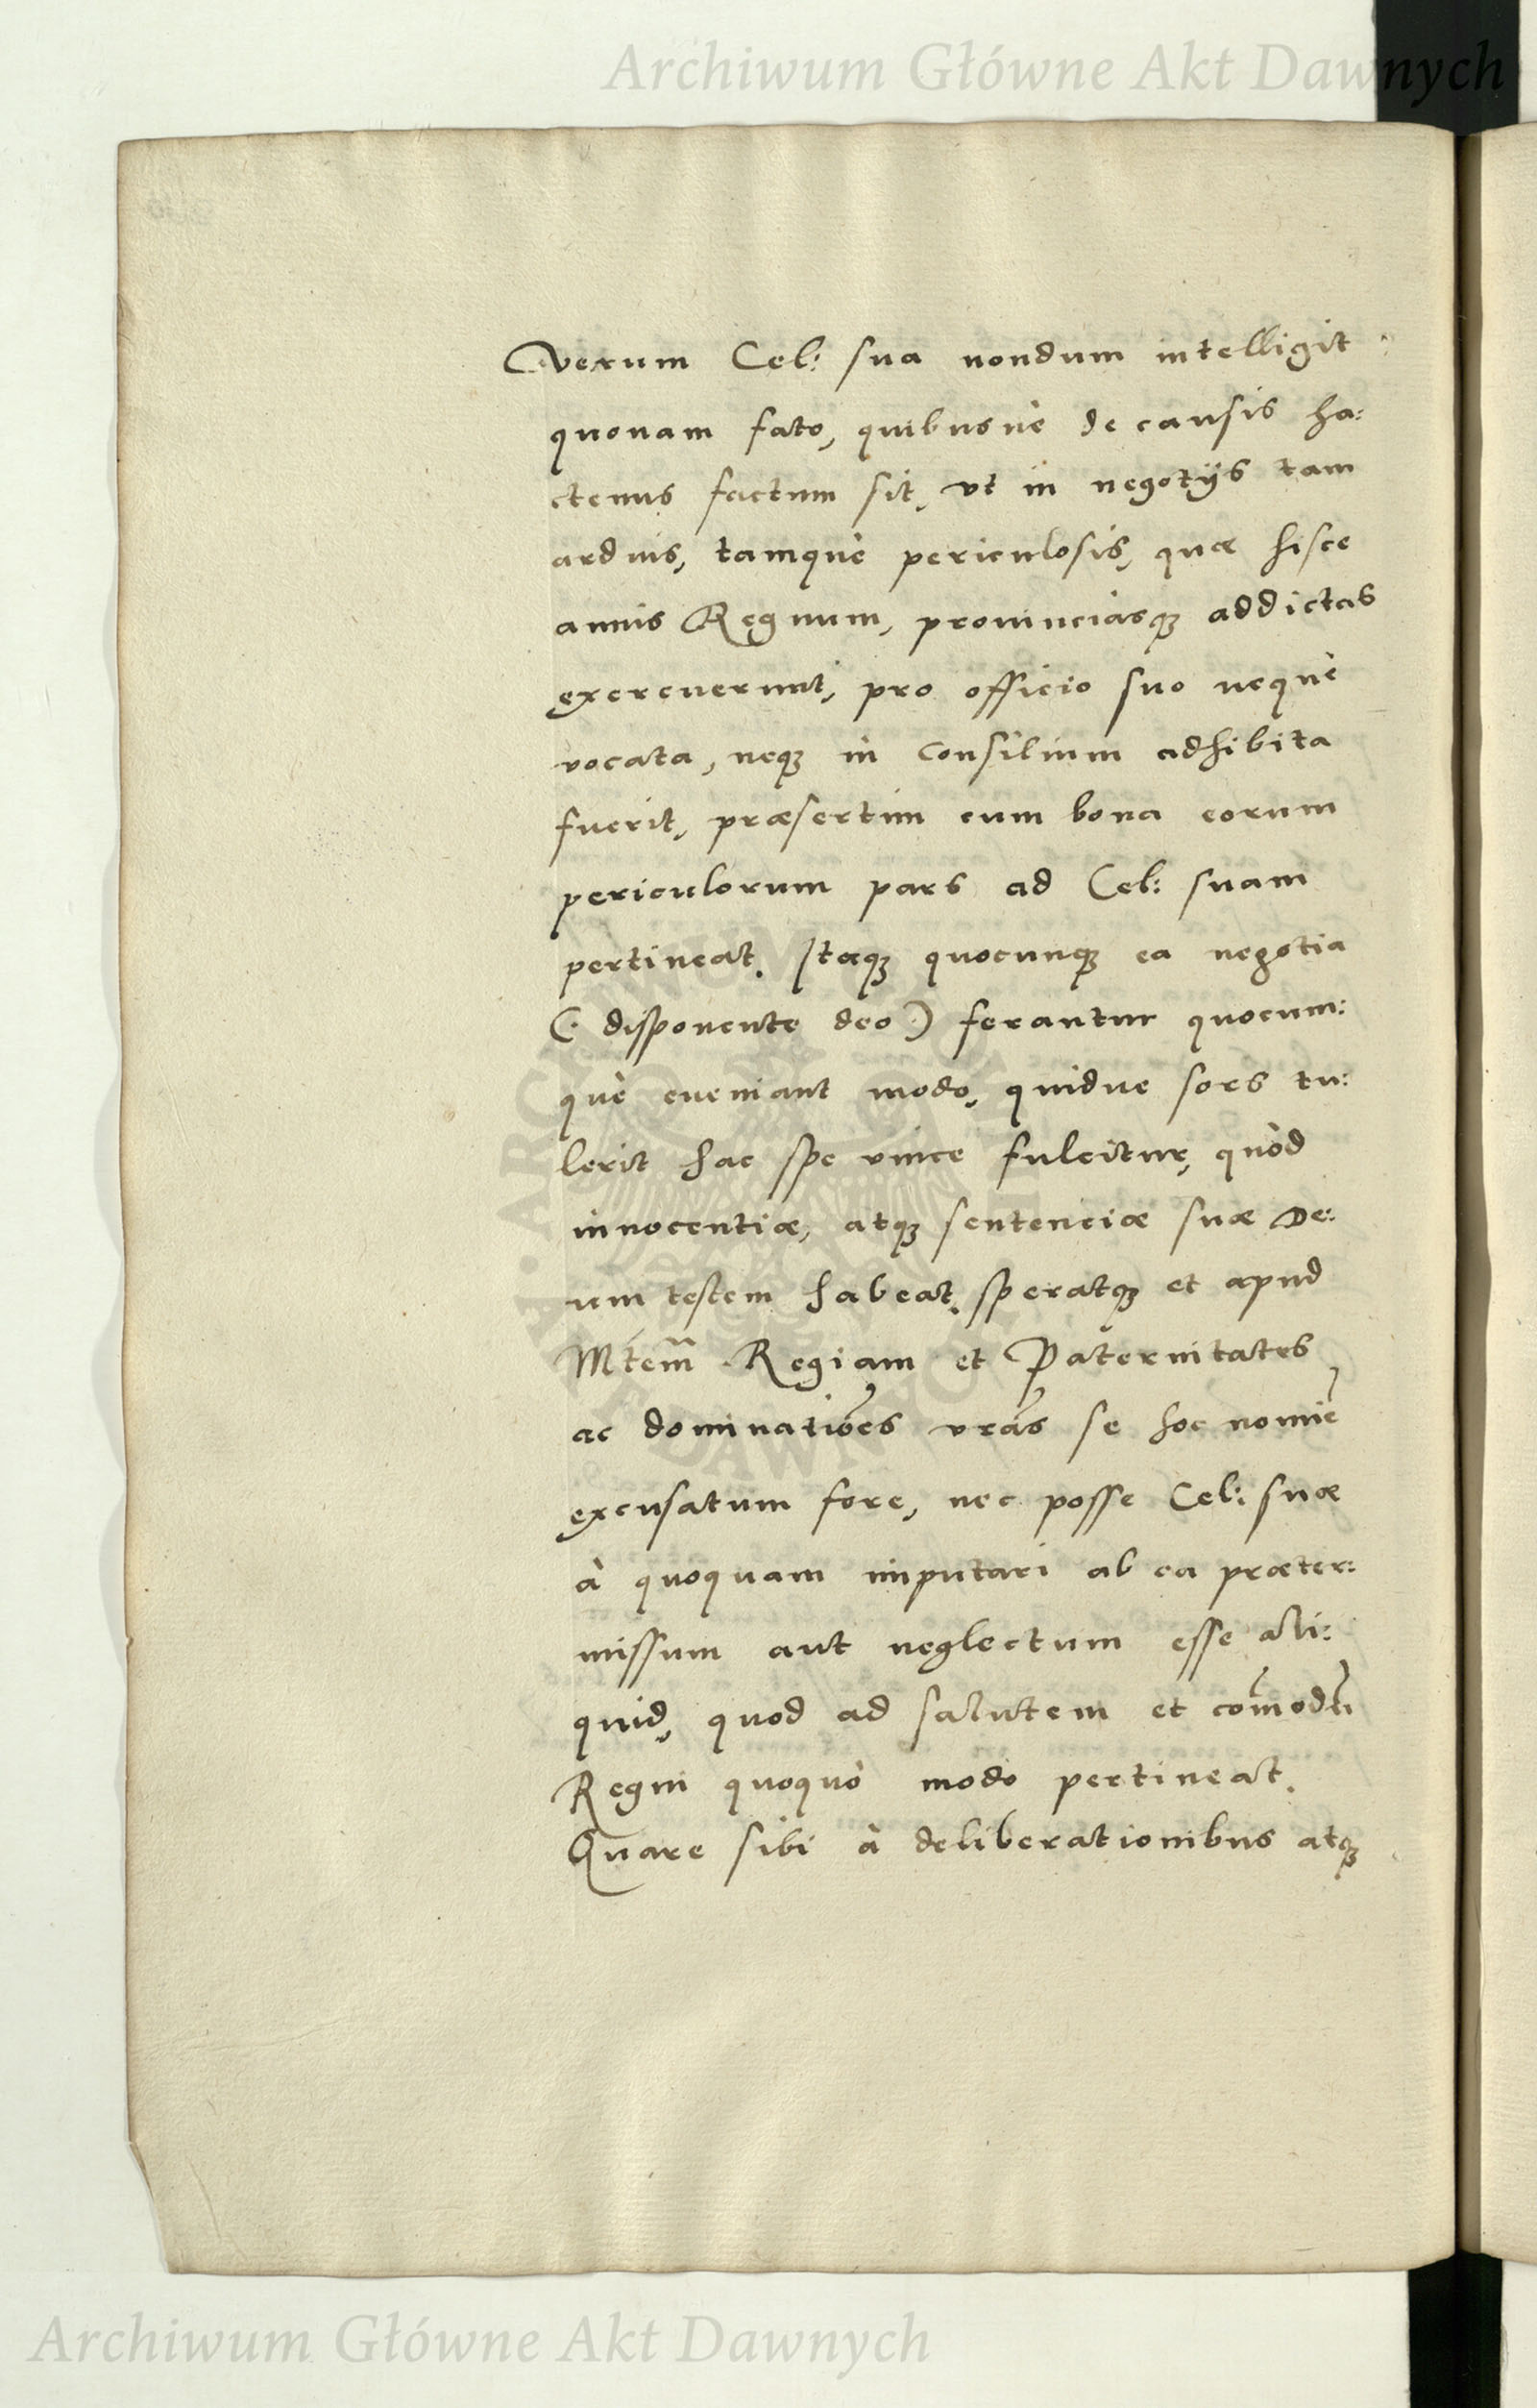 Archiwum Główne Akt Dawnych
Verum Cel: sua nondum intelligit
quonam fato, quibusuè de causis ha:
ctenus factum sit, vt in negotijs tam
arduis, tamquè periculosis, quæ hisce
annis Regnum, prouinciasqȝ addictas
exercuerunt, pro officio suo nequè
vocata, neqȝ in consilium adhibita
fuerit, præsertim cum bona eorum
periculorum pars ad Cel: suam
pertineat. Itaqȝ quocunqȝ ea negotia
(: disponente deo :) ferantur quocum:
què eueniant modo, quidue sors tu:
lerit hac spe vnice fulcitur, quòd
innocentiæ, atqȝ sentenciæ suæ De:
um testem habeat, speratqȝ et apud
Mtem̃ Regiam et Paternitates
ac dominatioēs vrãs se hoc nomīe
excusatum fore, nec posse Cel: suæ
à quoquam imputari ab ea præter:
missum aut neglectum esse ali:
quid, quod ad salutem et com̄odū
Regni quoquò modo pertineat.
Quare sibi à deliberationibus atqȝ
Archiwum Główne Akt Dawnych